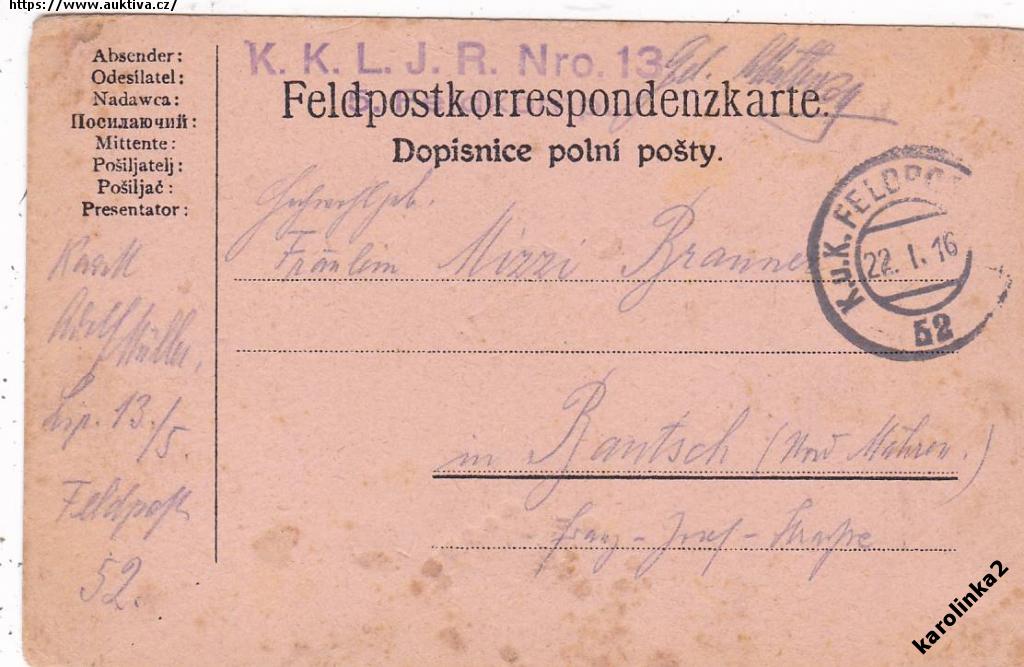 https://www.auktiva.cz/
Absender:
Odesílatel:
Nadawca:
Посилаючий:
Mittente:
Pošiljatelj:
Pošiljač:
Presentator:
K. K. L. J. R. Nro. 13
Feldpostkorrespondenzkarte.
Dopisnice polní pošty.
K.u.K. FELDPO
22. I. 16
52
Fräulein Mizzi Branner
in Bautsch (Nord Mähren.)
Franz-Josef-Straße
Adolf Müller,
13/5.
Feldpost
52.
karolinka2